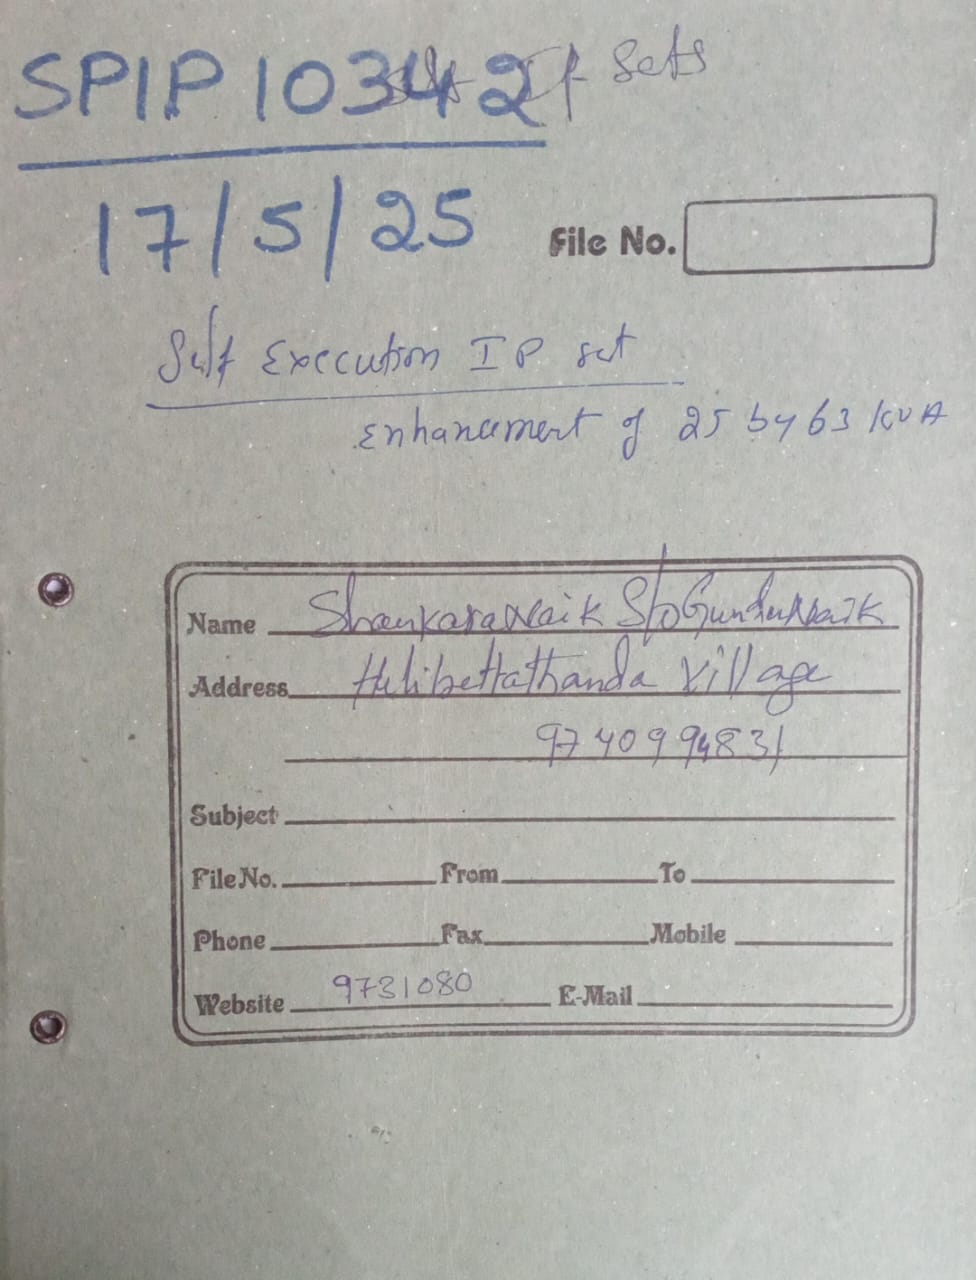 SPIP 10342 IP Sets
17/5/25
File No.
Self Execution IP set
enhancement of 25 by 63 KVA
Name Shankaranaik S/o Gundunaik
Address Hulibettathanda Village
9740994831
Subject
File No. From To
Phone Fax Mobile
Website 9731080 E-Mail